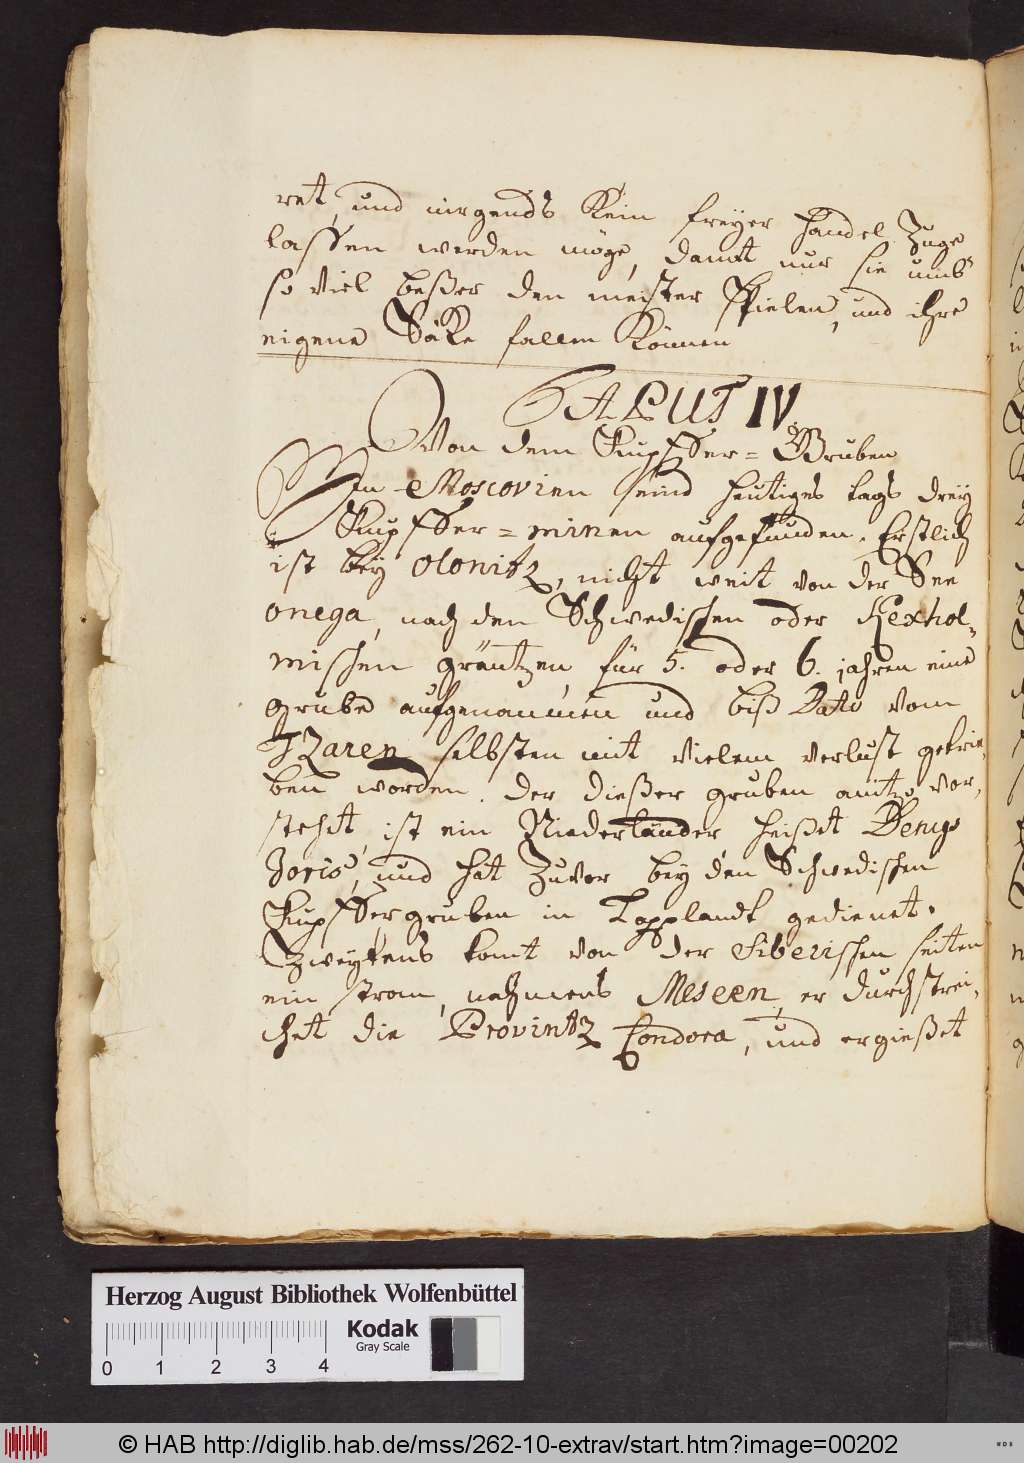 ret, und nirgends Kein freyer handel Zuge
lassen werden möge, damit nur sie umb
so viel beßer den meister Spielen, und ihre
eigene Säke fallen Können
CAPUT IV
Von dem Kupffer=Gruben
In Moscovien seind heutiges tags drey
Kupffer=minen aufgefunden. Erstlich
ist bey Olonitz, nicht weit von der See
onega, nach den Schwedischen oder Kexhol-
mischen gräntzen, für 5. oder 6. jahren eine
grube aufgenammen und biß Dato vom
Tzaren selbsten mit vielem verlust getrie-
ben worden. der dießer gruben anitzo vor,
stehet, ist ein Niederländer, heißet Denys
Joris, und hat Zuvor bey den Schwedischen
Kupffergruben in Lapplandt gedienet.
Zweytens komt von der Siberischen seiten
ein strom, nahmens Meseen, er durchstrei-
chet die Provintz Condora, und ergießet
Herzog August Bibliothek Wolfenbüttel
Kodak
Gray Scale
0 1 2 3 4
© HAB http://diglib.hab.de/mss/262-10-extrav/start.htm?image=00202